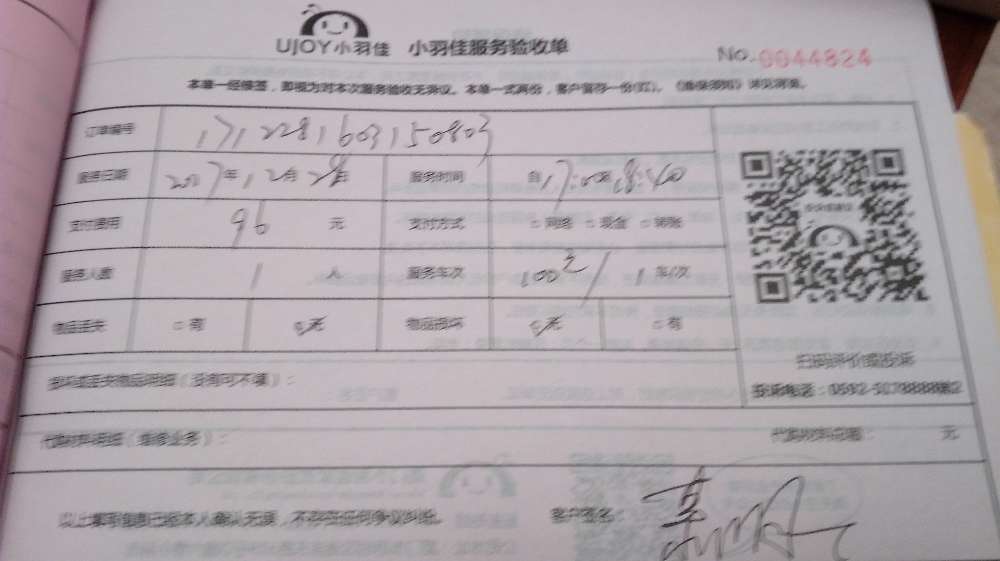 UJOY小羽佳 小羽佳服务验收单
No. 0044824
本单一经接签，即视为对本次服务验收无异议。本单一式两份，客户留存一份(红)。《维保须知》详见背面。
订单编号 1712281603150803
服务日期 2017年12月28日 服务时间 自17:00至18:40
支付费用 96 元 支付方式 □网络 □现金 □转账
服务人数 1 人 服务车次 1车/次
物品丢失 □有 □无 物品损坏 □无 □有
扫码评价或投诉
损坏或丢失物品明细（没有可不填）：
代购材料明细（维修业务）： 代购材料总额： 元
以上填写信息已经本人确认无误，不存在任何争议纠纷。 客户签名：